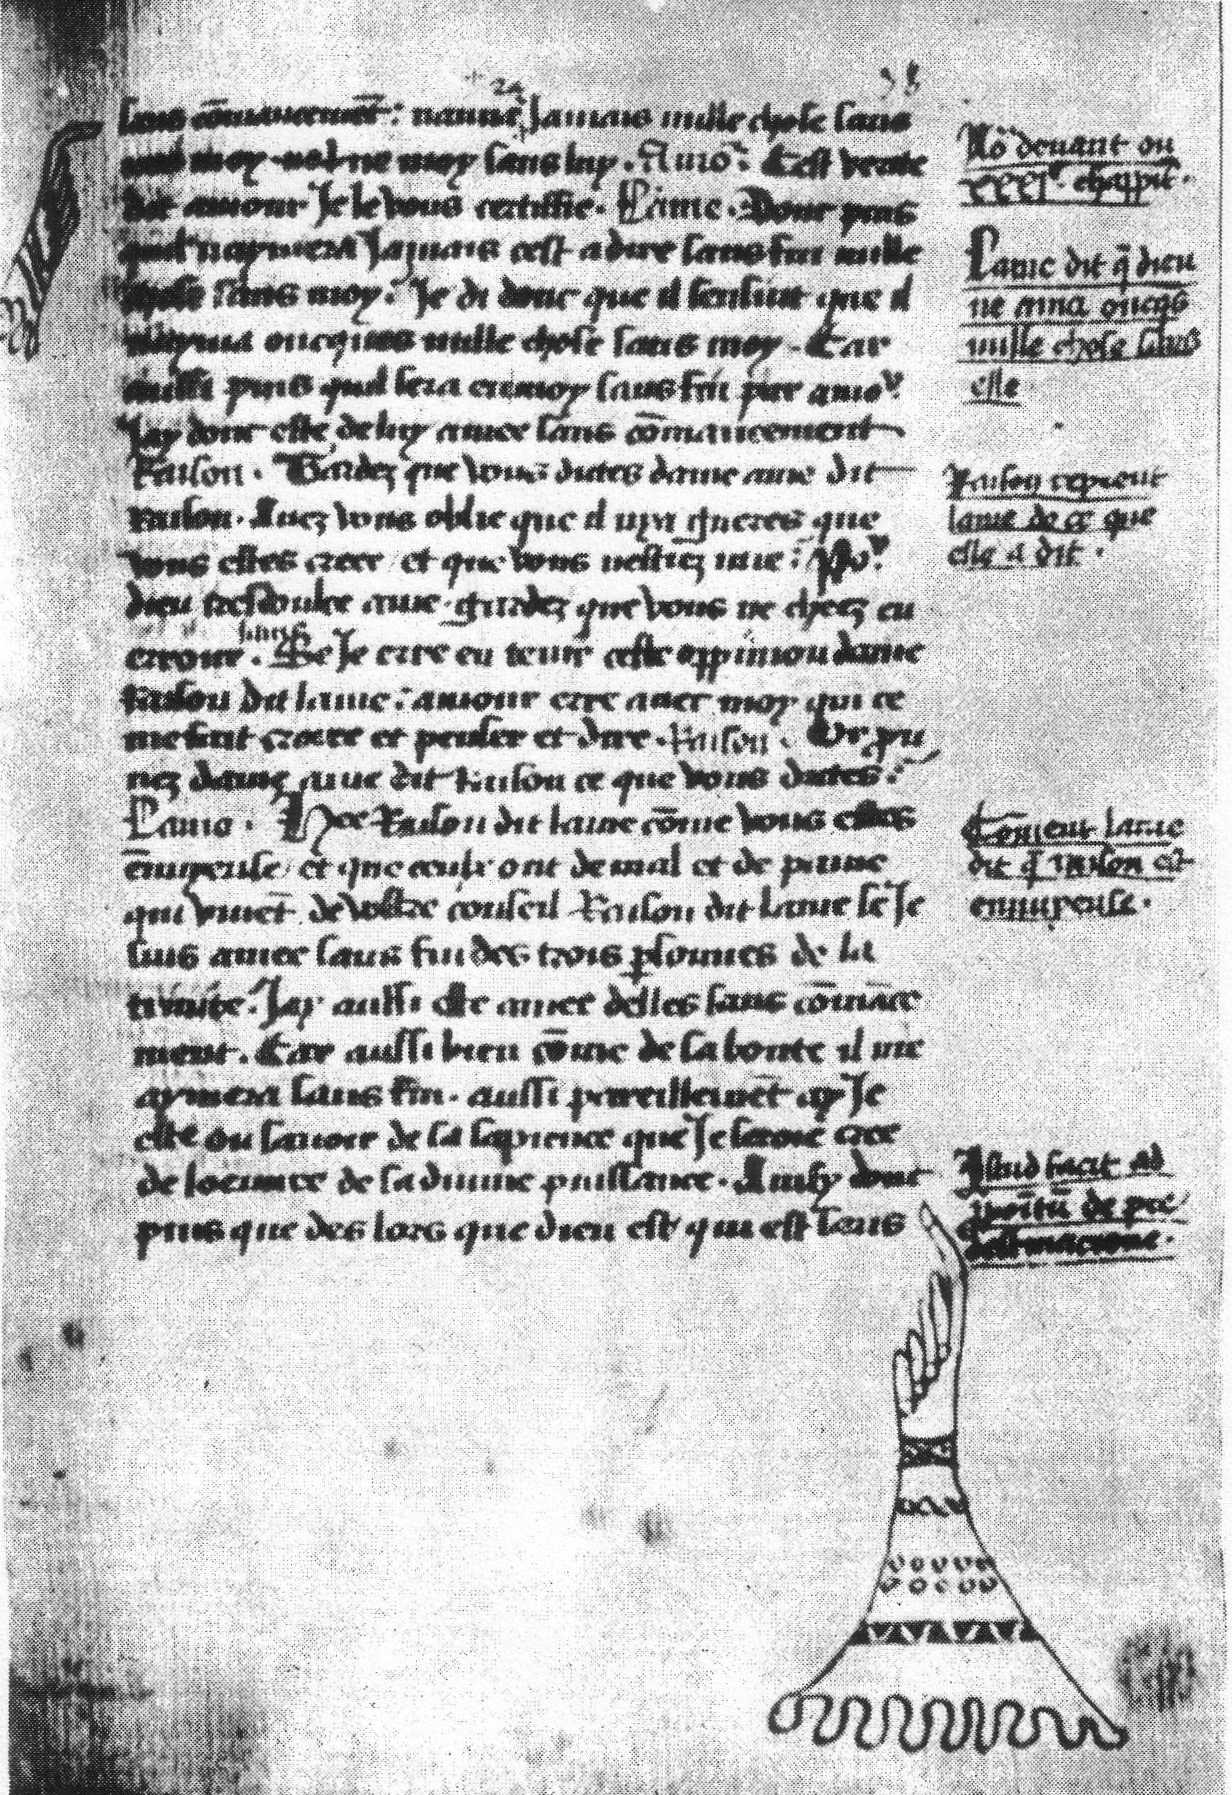 sans cōmancemēt: nañne Jamais nulle chose sans
moy ne moy sans luy. Amo᷑. Cest verite
dit amour Je le vous certiffie. Lame. Donc puis
quil naymera Jamais cest a dire sans fin nulle
chose sans moy. Je di donc que il sensuit que il
nayma oncques nulle chose sans moy. Car
aussi puis quil sera en moy sans fin par amo᷑.
Jay donc este de luy amee sans cōmancement
Raison. Gardez que vous dictes dame ame dit
raison. Auez vous oblie que il na gueres que
vous estes cree et que vous nestiez mie: Po᷑
dieu tresdoulce ame gardez que vous ne cheez en
errour. sans Se Je erre en tenir ceste oppinion dame
Raison dit lame: amour erre auec moy qui ce
me fait croire et penser et dire. Raison. Or prou
nez dame ame dit Raison ce que vous dictes.
Lame. Hee Raison dit lame cōme vous estes
ēnuyeuse et que ceulx ont de mal et de paine
qui viuēt de vostre conseil Raison dit lame se Je
suis amee sans fin des trois psonnes de la
trinite. Jay aussi este amee delles sans cōmāce
ment. Car aussi bien cōme de sa bonte il me
aymera sans fin. aussi pareillemēt ay Je
este ou sauoir de sa sapience que Je seroie cree
de loeuure de sa diuine puissance. Ainsy dont
puis que des lors que dieu est qui est sans
No᷑ deuant ou
xxxi. chappit.
Lame dit q̄ dieu
ne ama oncqs
nulle chose sans
elle
Raison reprent
lame de ce que
elle a dit.
Cōment lame
dit q̄ raison est
ennuyeuse.
Istud facit ad
de pre
destinacione.